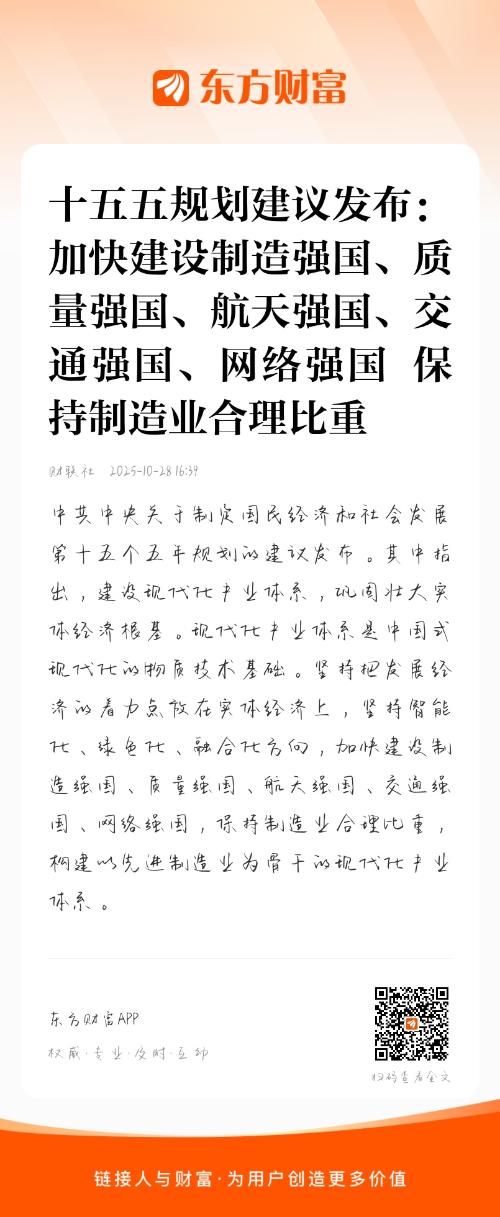 东方财富
十五五规划建议发布：
加快建设制造强国、质
量强国、航天强国、交
通强国、网络强国 保
持制造业合理比重
财联社 2025-10-28 16:39
中共中央关于制定国民经济和社会发展
第十五个五年规划的建议发布。其中指
出，建设现代化产业体系，巩固壮大实
体经济根基。现代化产业体系是中国式
现代化的物质技术基础。坚持把发展经
济的着力点放在实体经济上，坚持智能
化、绿色化、融合化方向，加快建设制
造强国、质量强国、航天强国、交通强
国、网络强国，保持制造业合理比重，
构建以先进制造业为骨干的现代化产业
体系。
东方财富APP
权威·专业·及时·互动
扫码查看全文
链接人与财富·为用户创造更多价值